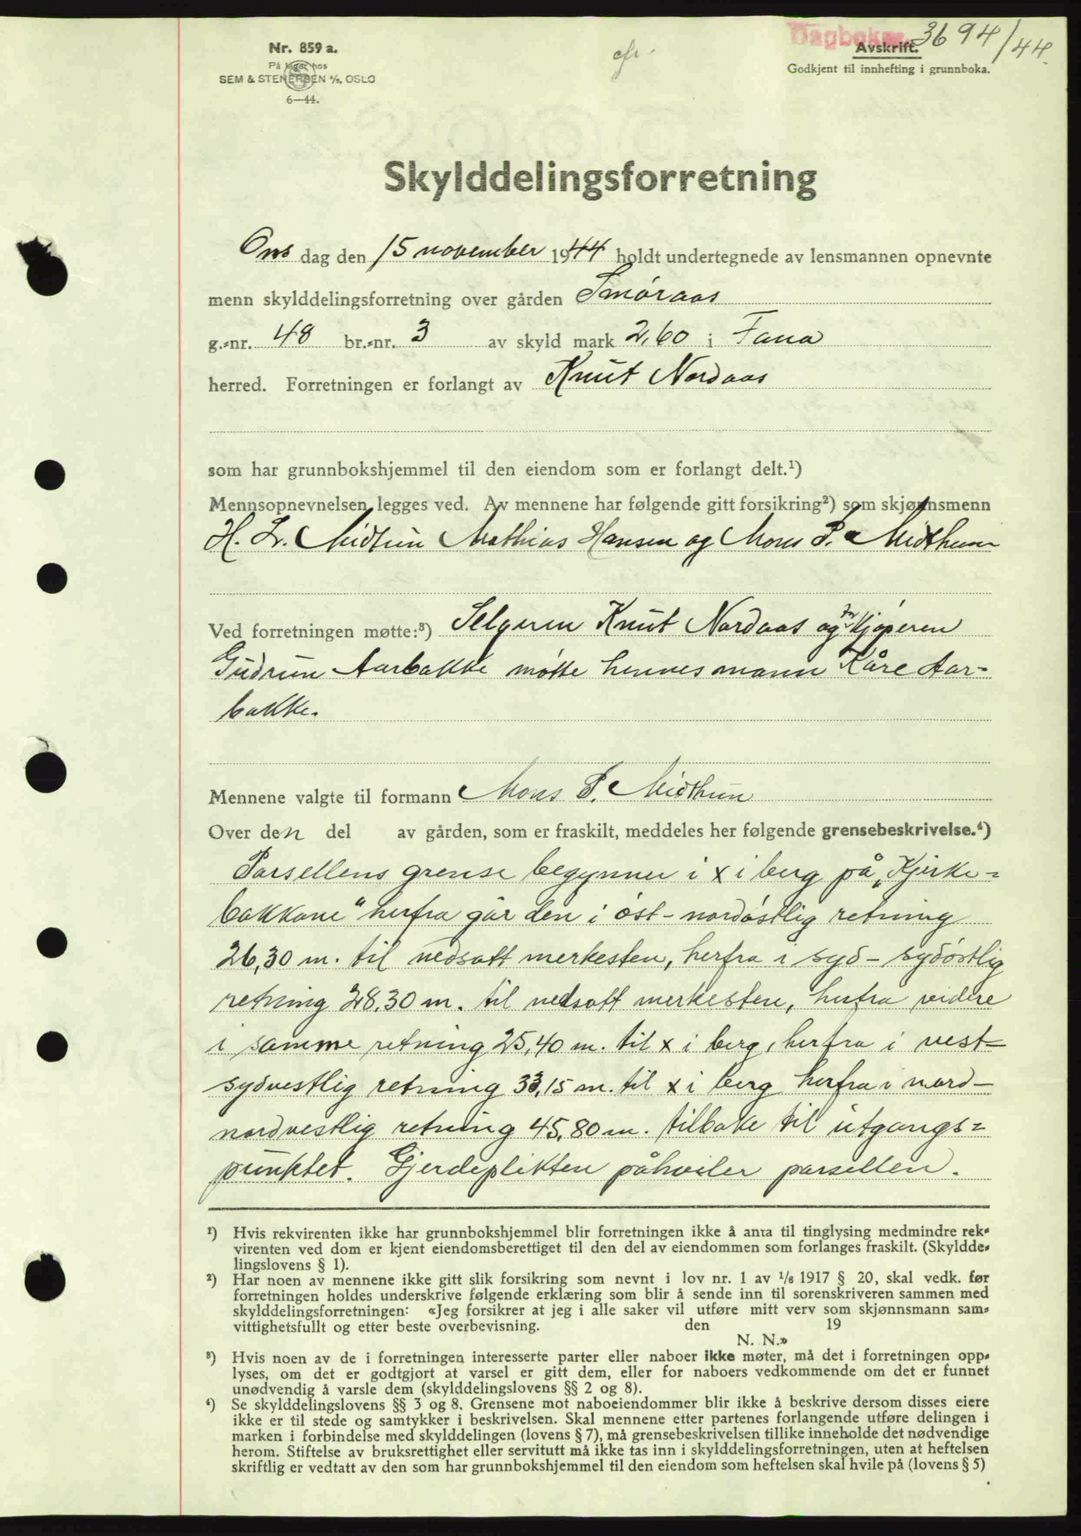 Nr. 859 a.
På lager hos
SEM & STENERSEN A/S, OSLO
6—44.
Dagboknr. 3694/44.
Avskrift.
Godkjent til innhefting i grunnboka.
Skylddelingsforretning
Ons dag den 15 november 1944 holdt undertegnede av lensmannen opnevnte
menn skylddelingsforretning over gården Smøraas
g.-nr. 48 br.-nr. 3 av skyld mark 2,60 i Fana
herred. Forretningen er forlangt av Knut Nordaas
som har grunnbokshjemmel til den eiendom som er forlangt delt.¹)
Mennsopnevnelsen legges ved. Av mennene har følgende gitt forsikring²) som skjønnsmenn
H. L. Midtun Mathias Hansen og Mons P. Midthun
Ved forretningen møtte:³) Selgeren Knut Nordaas og for kjøperen
Gudrun Aarbakke møtte hennes mann Kåre Aar-
bakke.
Mennene valgte til formann Mons P. Midthun
Over den del av gården, som er fraskilt, meddeles her følgende grensebeskrivelse.⁴)
Parsellens grense begynner i x i berg på „Kjirke-
bakkane" herfra går den i øst-nordøstlig retning
26,30 m. til nedsatt merkesten, herfra i syd-sydøstlig
retning 28,30 m. til nedsatt merkesten, herfra videre
i samme retning 25,40 m. til x i berg, herfra i vest-
sydvestlig retning 33,15 m. til x i berg herfra i nord-
nordvestlig retning 45,80 m. tilbake til utgangs-
punktet. Gjerdeplikten påhviler parsellen.
¹) Hvis rekvirenten ikke har grunnbokshjemmel blir forretningen ikke å anta til tinglysing medmindre rek-
virenten ved dom er kjent eiendomsberettiget til den del av eiendommen som forlanges fraskilt. (Skyldde-
lingslovens § 1).
²) Har noen av mennene ikke gitt slik forsikring som nevnt i lov nr. 1 av 1/6 1917 § 20, skal vedk. før
forretningen holdes underskrive følgende erklæring som blir å sende inn til sorenskriveren sammen med
skylddelingsforretningen: «Jeg forsikrer at jeg i alle saker vil utføre mitt verv som skjønnsmann sam-
vittighetsfullt og etter beste overbevisning. den 19
N. N.»
³) Hvis noen av de i forretningen interesserte parter eller naboer ikke møter, må det i forretningen opp-
lyses, om det er godtgjort at varsel er gitt dem, eller for naboers vedkommende om det er funnet
unødvendig å varsle dem (skylddelingslovens §§ 2 og 8).
⁴) Se skylddelingslovens §§ 3 og 8. Grensene mot naboeiendommer blir ikke å beskrive dersom disses eiere
ikke er til stede og samtykker i beskrivelsen. Skal mennene etter partenes forlangende utføre delingen i
marken i forbindelse med skylddelingen (lovens § 7), må grensebeskrivelsen tillike inneholde det nødvendige
herom. Stiftelse av bruksrettighet eller servitutt må ikke tas inn i skylddelingsforretningen, uten at heftelsen
skriftlig er vedtatt av den som har grunnbokshjemmel til den eiendom som heftelsen skal hvile på (lovens § 5)